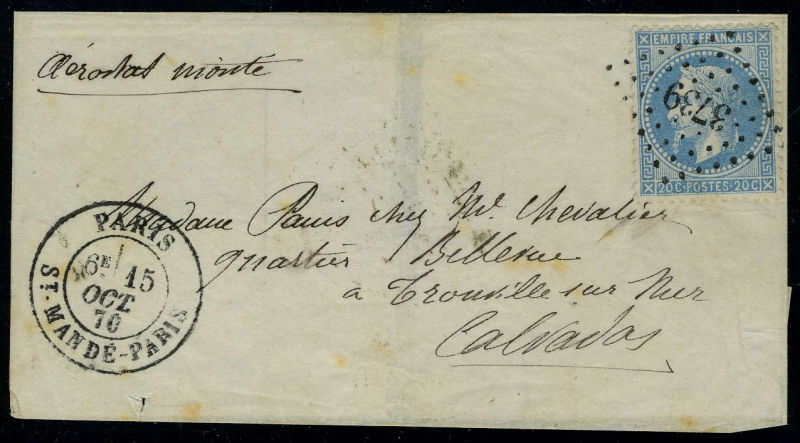 Aérostat monté
EMPIRE FRANÇAIS
3739
20C-POSTES-20C
Madame Paris chez Mr Chevalier
quartier Bellevue
a Trouville sur Mer
Calvados
PARIS
6E 15
OCT
70
ST MANDÉ-PARIS